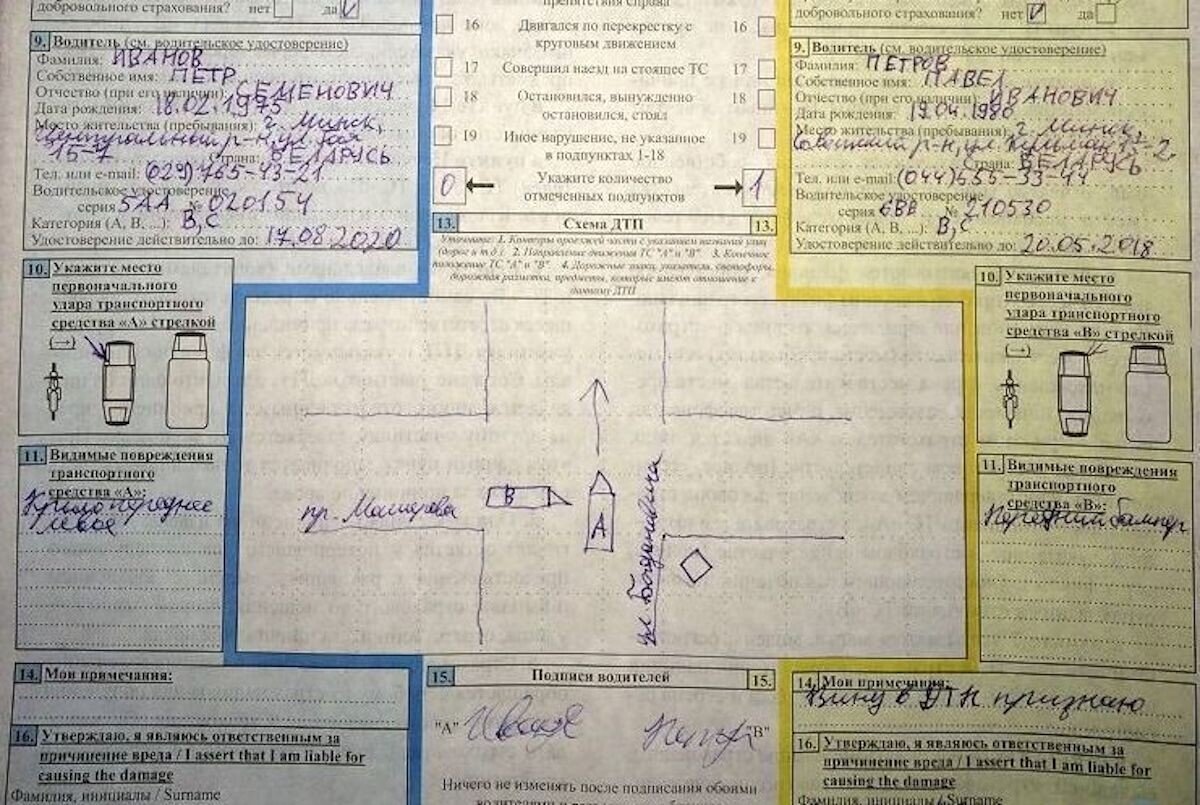 добровольного страхования? нет да V
9. Водитель (см. водительское удостоверение)
Фамилия: ИВАНОВ
Собственное имя: ПЕТР
Отчество (при его наличии): СЕМЕНОВИЧ
Дата рождения: 18.02.1975
Место жительства (пребывания): г. Минск,
Центральный р-н, ул.
15-7 Страна: БЕЛАРУСЬ
Тел. или e-mail: (029) 765-43-21
Водительское удостоверение
серия 5АА № 020154
Категория (А, В, ...): В, С
Удостоверение действительно до: 17.08.2020
10. Укажите место
первоначального
удара транспортного
средства «А» стрелкой
(→)
11. Видимые повреждения
транспортного
средства «А»:
Крыло переднее
левое
14. Мои примечания:
16. Утверждаю, я являюсь ответственным за
причинение вреда / I assert that I am liable for
causing the damage
Фамилия, инициалы / Surname
препятствия справа
16 Двигался по перекрестку с 16
круговым движением
17 Совершил наезд на стоящее ТС 17
18 Остановился, вынужденно 18
остановился, стоял
19 Иное нарушение, не указанное 19
в подпунктах 1-18
0 ← Укажите количество → 1
отмеченных подпунктов
13. Схема ДТП 13.
Уточните: 1. Контуры проезжей части с указанием названия улиц
(дорог и т.д.) 2. Направление движения ТС "А" и "В". 3. Конечное
положение ТС "А" и "В". 4. Дорожные знаки, указатели, светофоры,
дорожная разметка, предметы, которые имеют отношение к
данному ДТП
пр. Машерова
В
А
ул. Богдановича
15. Подписи водителей 15.
"А" "В"
Ничего не изменять после подписания обоими
добровольного страхования? нет V да
9. Водитель (см. водительское удостоверение)
Фамилия: ПЕТРОВ
Собственное имя: ПАВЕЛ
Отчество (при его наличии): ИВАНОВИЧ
Дата рождения: 19.04.1980
Место жительства (пребывания): г. Минск,
Советский р-н, ул. Кульман 13-2
Страна: БЕЛАРУСЬ
Тел. или e-mail: (044) 655-33-44
Водительское удостоверение
серия 6ВЕ № 210530
Категория (А, В, ...): В, С
Удостоверение действительно до: 20.05.2018
10. Укажите место
первоначального
удара транспортного
средства «В» стрелкой
(→)
11. Видимые повреждения
транспортного
средства «В»:
Передний бампер
14. Мои примечания:
Вину в ДТП признаю
16. Утверждаю, я являюсь ответственным за
причинение вреда / I assert that I am liable for
causing the damage
Фамилия, инициалы / Surname